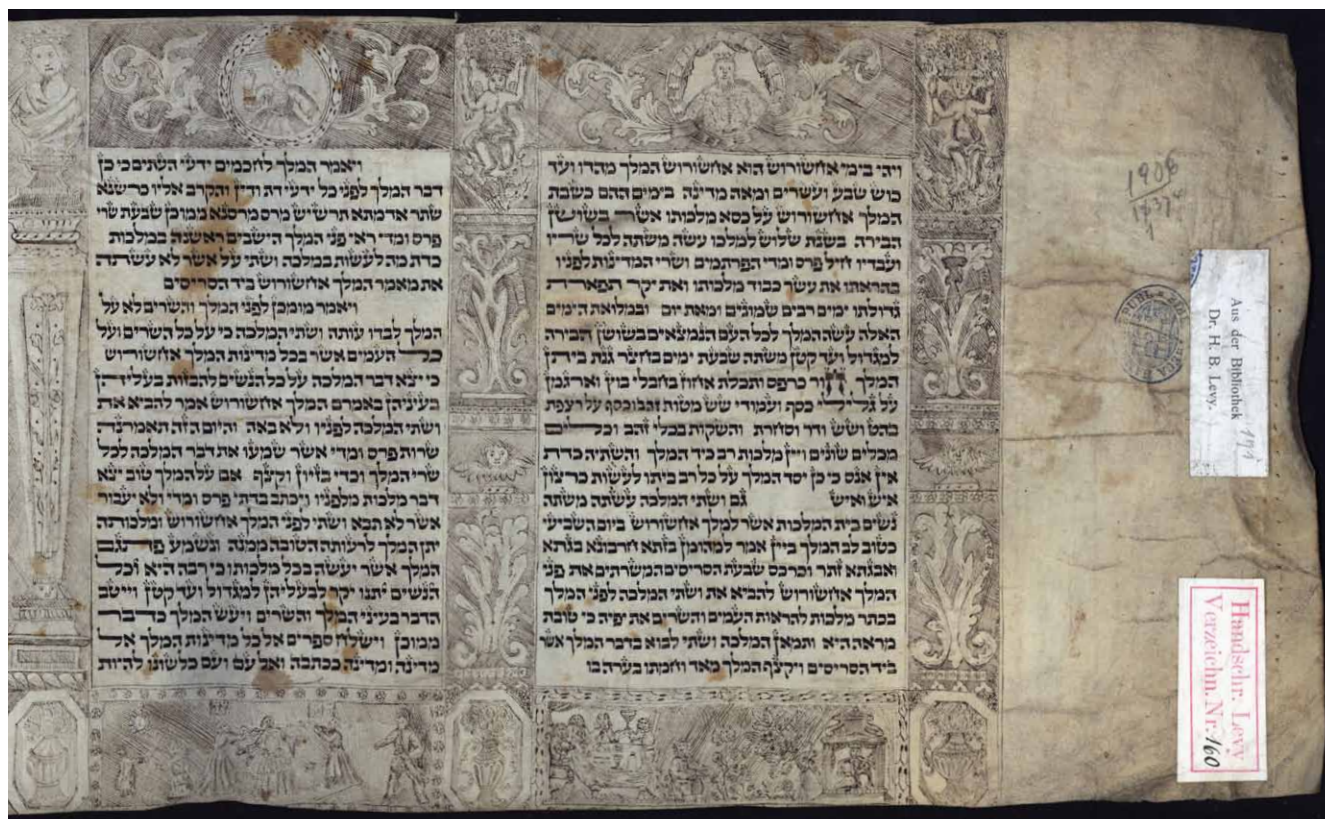 ויהי בימי אחשורוש הוא אחשורוש המלך מהדו ועד
כוש שבע ועשרים ומאה מדינה בימים ההם כשבת
המלך אחשורוש על כסא מלכותו אשר בשושן
הבירה בשנת שלוש למלכו עשה משתה לכל שריו
ועבדיו חיל פרס ומדי הפרתמים ושרי המדינות לפניו
בהראתו את עשר כבוד מלכותו ואת יקר תפארת
גדולתו ימים רבים שמונים ומאת יום ובמלואת הימים
האלה עשה המלך לכל העם הנמצאים בשושן הבירה
למגדול ועד קטן משתה שבעת ימים בחצר גנת ביתן
המלך חור כרפס ותכלת אחוז בחבלי בוץ וארגמן
על גלילי כסף ועמודי שש מטות זהב וכסף על רצפת
בהט ושש ודר וסחרת והשקות בכלי זהב וכלים
מכלים שונים ויין מלכות רב כיד המלך והשתיה כדת
אין אנס כי כן יסד המלך על כל רב ביתו לעשות כרצון
איש ואיש גם ושתי המלכה עשתה משתה
נשים בית המלכות אשר למלך אחשורוש ביום השביעי
כטוב לב המלך ביין אמר למהומן בזתא חרבונא בגתא
ואבגתא זתר וכרכס שבעת הסריסים המשרתים את פני
המלך אחשורוש להביא את ושתי המלכה לפני המלך
בכתר מלכות להראות העמים והשרים את יפיה כי טובת
מראה היא ותמאן המלכה ושתי לבוא בדבר המלך אשר
ביד הסריסים ויקצף המלך מאד וחמתו בערה בו
ויאמר המלך לחכמים ידעי העתים כי כן
דבר המלך לפני כל ידעי דת ודין והקרב אליו כרשנא
שתר אדמתא תרשיש מרס מרסנא ממוכן שבעת שרי
פרס ומדי ראי פני המלך הישבים ראשנה במלכות
כדת מה לעשות במלכה ושתי על אשר לא עשתה
את מאמר המלך אחשורוש ביד הסריסים
ויאמר מומכן לפני המלך והשרים לא על
המלך לבדו עותה ושתי המלכה כי על כל השרים ועל
כל העמים אשר בכל מדינות המלך אחשורוש
כי יצא דבר המלכה על כל הנשים להבזות בעליהן
בעיניהן באמרם המלך אחשורוש אמר להביא את
ושתי המלכה לפניו ולא באה והיום הזה תאמרנה
שרות פרס ומדי אשר שמעו את דבר המלכה לכל
שרי המלך וכדי בזיון וקצף אם על המלך טוב יצא
דבר מלכות מלפניו ויכתב בדתי פרס ומדי ולא יעבור
אשר לא תבא ושתי לפני המלך אחשורוש ומלכותה
יתן המלך לרעותה הטובה ממנה ונשמע פתגם
המלך אשר יעשה בכל מלכותו כי רבה היא וכל
הנשים יתנו יקר לבעליהן למגדול ועד קטן וייטב
הדבר בעיני המלך והשרים ויעש המלך כדבר
ממוכן וישלח ספרים אל כל מדינות המלך אל
מדינה ומדינה ככתבה ואל עם ועם כלשונו להיות
1906
Aus der Bibliothek
Dr. H. B. Levy.
Handschr. Levy
Verzeichn. Nr. 160